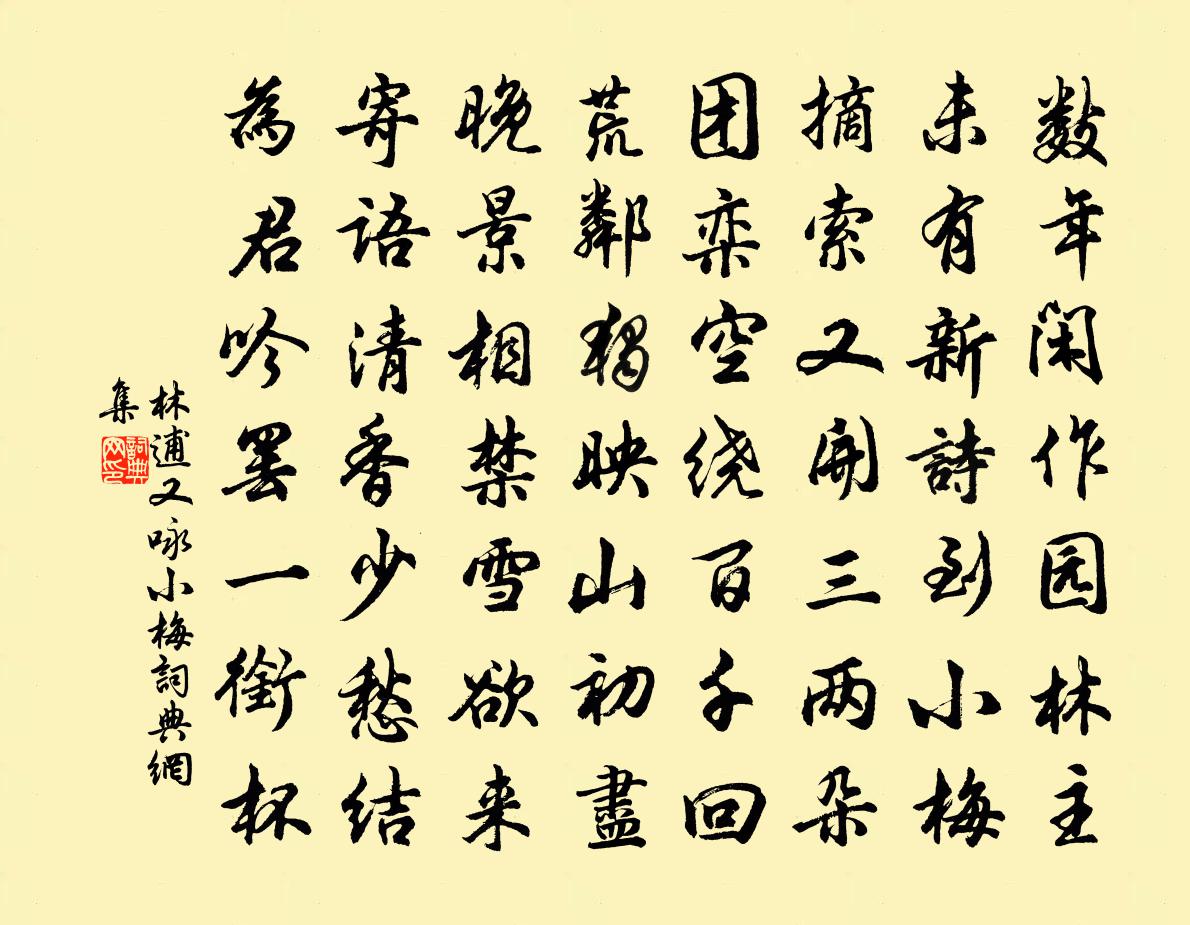 数年闲作园林主
未有新詩到小梅
摘索又開三两朵
团栾空绕百千回
荒鄰獨映山初盡
晚景相禁雪欲来
寄語清香少愁结
為君吟罢一銜杯
林逋又咏小梅詞典網
集
詞典
网印